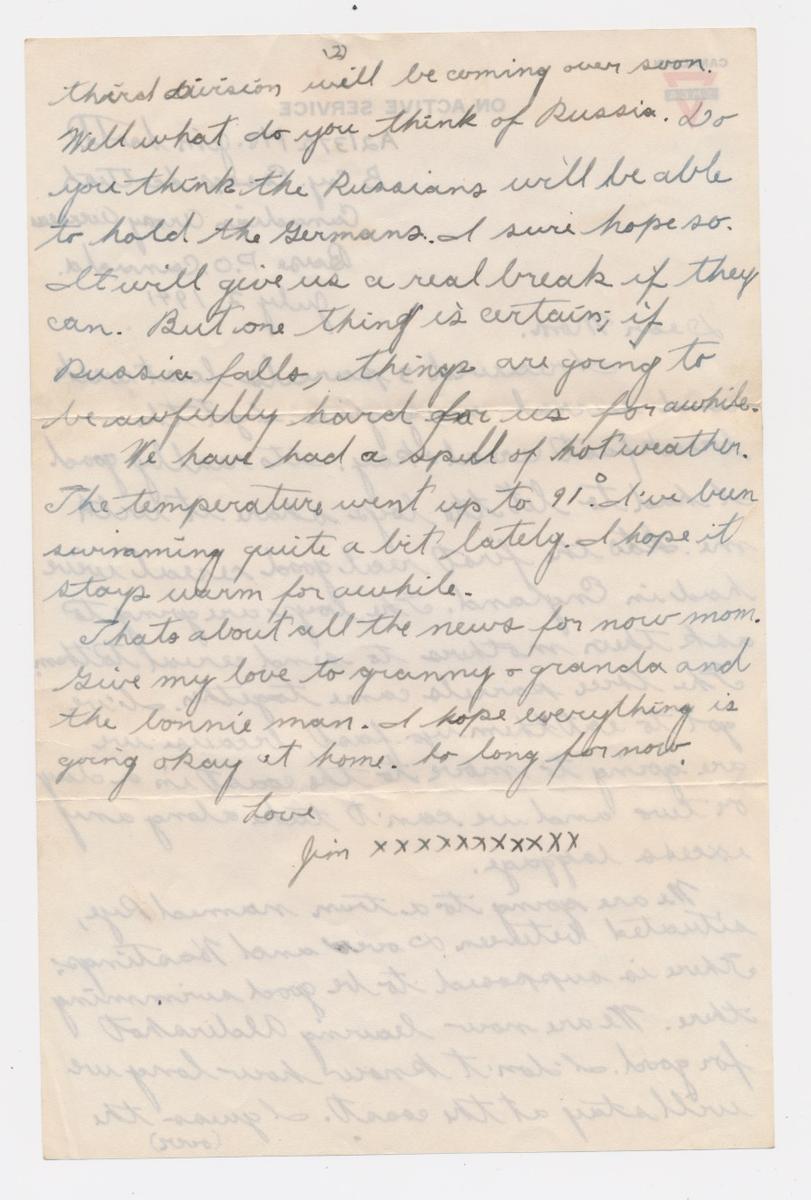 (2)
third division will be coming over soon.
Well what do you think of Russia. Do
you think the Russians will be able
to hold the Germans. I sure hope so.
It will give us a real break if they
can. But one thing is certain; if
Russia falls, things are going to
be awfully hard for us for awhile.
We have had a spell of hot weather.
The temperature went up to 91°. I've been
swimming quite a bit lately. I hope it
stays warm for awhile.
Thats about all the news for now mom.
Give my love to granny & granda and
the bonnie man. I hope everything is
going okay at home. So long for now.
Love
Jim xxxxxxxxxxx